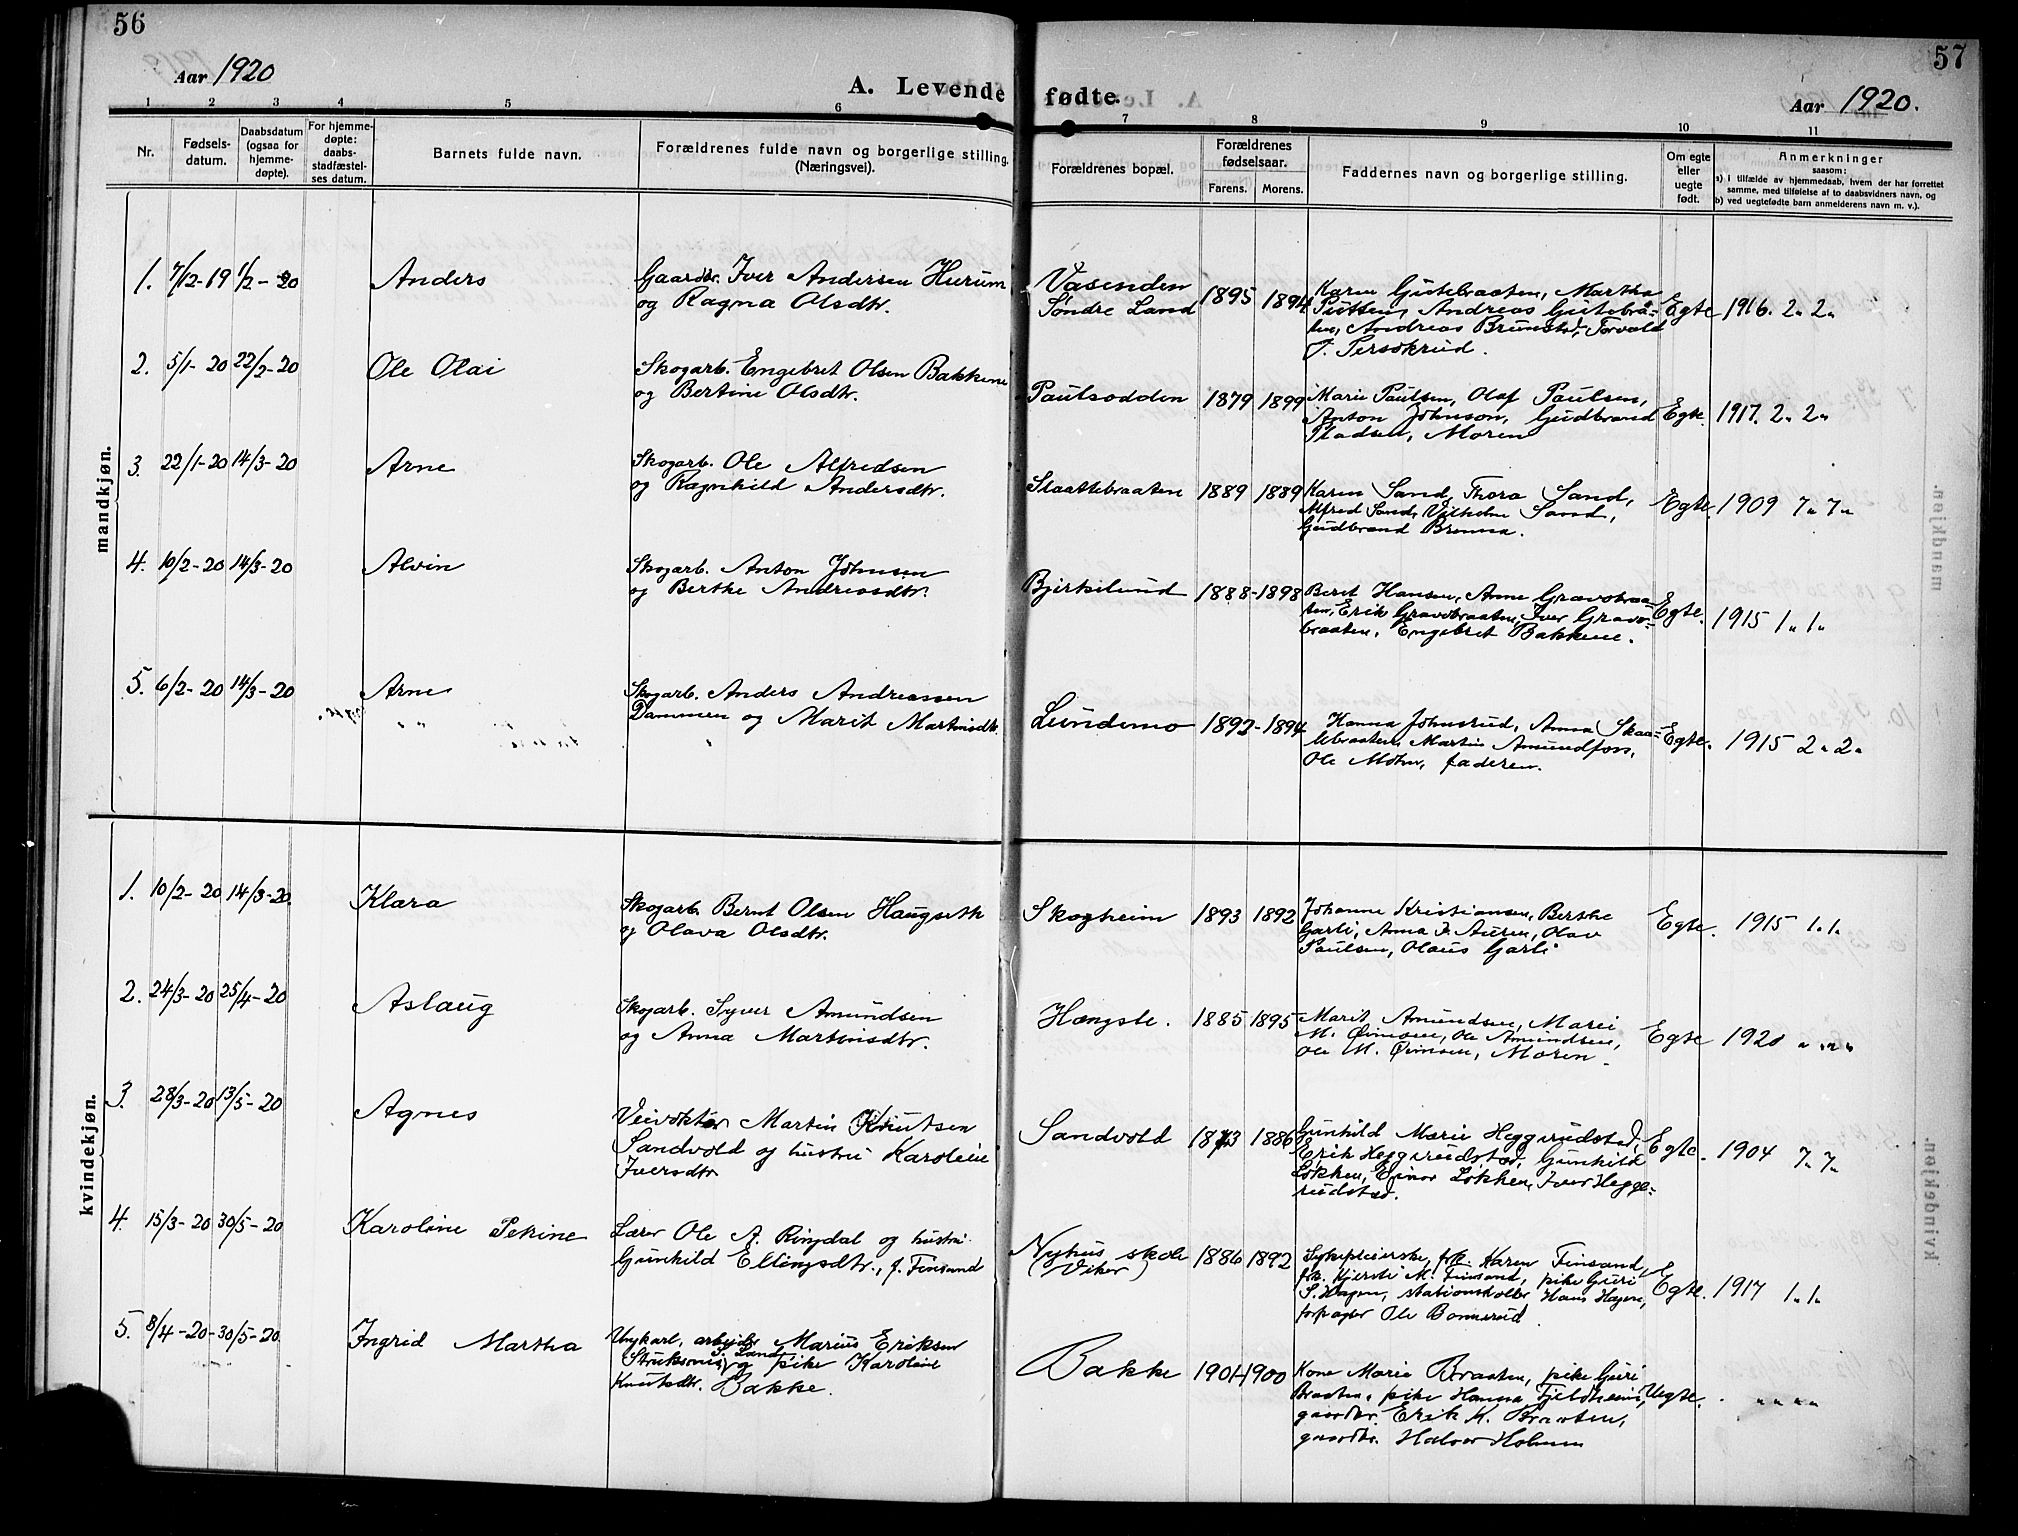 56
Aar 1920
A. Levende fødte.
57
Aar 1920.
1 2 3 4 5 6 7 8 9 10 11
Nr.
Fødsels-
datum.
Daabsdatum
(ogsaa for
hjemme-
døpte).
For hjemme-
døpte:
daabs-
stadfæstel-
ses datum.
Barnets fulde navn.
Forældrenes fulde navn og borgerlige stilling.
(Næringsvei).
Forældrenes bopæl.
Forældrenes
fødselsaar.
Farens. Morens.
Faddernes navn og borgerlige stilling.
Om egte
eller
uegte
født.
Anmerkninger
saasom:
a) i tilfælde av hjemmedaab, hvem der har forrettet
samme, med tilføielse af to daabsvidners navn, og
b) ved uegtefødte barn anmelderens navn m. v.).
mandkjøn.
1. 7/12-19 1/2-20 Anders
Gaardbr. Iver Andersen Hurum
og Ragna Olsdtr.
Vasenden
Søndre Land
1895 1894
Karen Gutebraaten, Martha
Putten, Andreas Gutebraa-
ten, Andreas Brunstad, Torvald
J. Persokrud.
Egte 1916. 2. 2.
2. 5/1-20 22/2-20 Ole Olai
Skogarb. Engebret Olsen Bakkene
og Bertine Olsdtr.
Paulsodden 1879 1899
Marie Paulsen, Olaf Paulsen,
Anton Johnson, Gudbrand
Pladsen, Moren
Egte. 1917. 2. 2.
3. 22/1-20 14/3-20 Arne
Skogarb. Ole Alfredsen
og Ragnhild Andersdtr.
Slaattebraaten 1889 1889
Karen Sand, Thora Sand,
Alfred Sand, Vilhelm Sand,
Gudbrand Brenna.
Egte. 1909 7. 7.
4. 10/2-20 14/3-20 Alvin
Skogarb. Anton Johnsen
og Berthe Andreasdtr.
Bjirkelund 1888-1898
Beret Hansen, Anne Gravbraa-
ten, Erik Gravbraaten, Iver Grav-
braaten, Engebret Bakkene.
Egte. 1915 1. 1.
5. 6/2-20 14/3-20 Arne
Skogarb. Anders Andreassen
Dammen og Marit Martinsdtr.
Lundemo 1892-1894
Hanna Johnsrud, Anna Skaa-
lebraaten, Martin Amundfoss,
Ole Mohn, faderen.
Egte. 1915 2. 2.
kvindekjøn.
1. 10/2-20 14/3-20. Klara
Skogarb. Bernt Olsen Haugseth
og Olava Olsdtr.
Skogheim 1893 1892
Johanne Kristiansen, Berthe
Garli, Anna P. Auren, Olav
Paulsen, Olaus Garli
Egte. 1915 1. 1.
2. 24/3-20 25/4-20 Aslaug
Skogarb. Syver Amundsen
og Anna Martinsdtr.
Hængsle. 1885 1895
Marit Amundsen, Marie
M. Ørimoen, Ole Amundsen,
Ole M. Ørimoen, Moren.
Egte 1920 " " "
3. 28/3-20 13/5-20 Agnes
Veivokter Martin Knutsen
Sandvold og hustru Karoline
Iversdtr
Sandvold 1873 1886
Gunhild Marie Heggerudstad,
Erik Heggerudstad, Gunhild
Løkken, Einar Løkken, Iver Hegge-
rudstad.
Egte. 1904 7. 7.
4. 15/3-20 30/5-20 Karoline Petrine
Lærer Ole A. Ringdal og hustru
Gunhild Ellingsdtr., f. Finsand
Nyhus skole
(Viker)
1886 1892
Sykepleierske, frk. Karen Finsand,
frk. Kjersti M. Finsand, pike Guri
S. Hagen, stationsholder Hans Hagen,
forpagter Ole Bonnerud.
Egte. 1917 1. 1.
5. 8/4-20-30/5-20 Ingrid Martha
Ungkarl, arbeider Marius Eriksen
Struksnes, S. Land, og pike Karoline
Knutsdtr. Bakke.
Bakke 1901-1900
Kone Marie Braaten, pike Guri
Braaten, pike Hanna Fjeldheim,
gaardbr. Erik K. Braaten,
gaardbr. Halvor Holmen
Uegte. " " " "